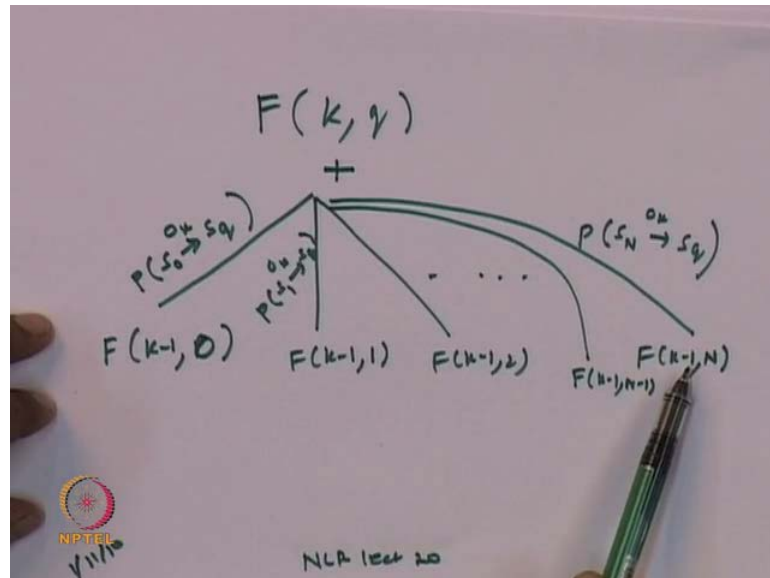 F(k, q)
+
P(S₀ →ᴼᵏ Sq)
P(S₁ →ᴼᵏ Sq)
. . . .
P(S_N →ᴼᵏ Sq)
F(k-1, 0)
F(k-1, 1)
F(k-1, 2)
F(k-1, N-1)
F(k-1, N)
NPTEL
1/11/10
NLP lect 20